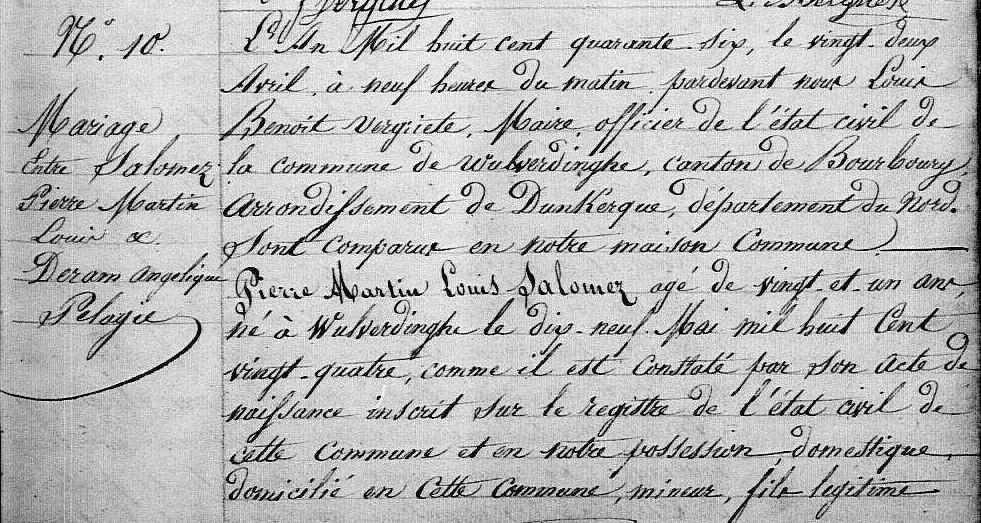 N.° 10.
Mariage
Entre Salomez
Pierre Martin
Louis &.
Deram Angelique
Pelagie
L'An Mil huit cent quarante-six, le vingt-deux
Avril, à neuf heures du matin, pardevant nous Louis
Benoît Vergriete, Maire, officier de l'état civil de
la commune de Wulverdinghe, canton de Bourbourg,
Arrondissement de Dunkerque, département du Nord.
Sont comparus en notre maison Commune
Pierre Martin Louis Salomez agé de vingt-et-un ans,
né à Wulverdinghe le dix-neuf Mai mil huit Cent
vingt-quatre, comme il est Constaté par son Acte de
naissance inscrit sur le registre de l'état civil de
cette Commune et en notre possession, domestique,
domicilié en Cette Commune, mineur, fils legitime